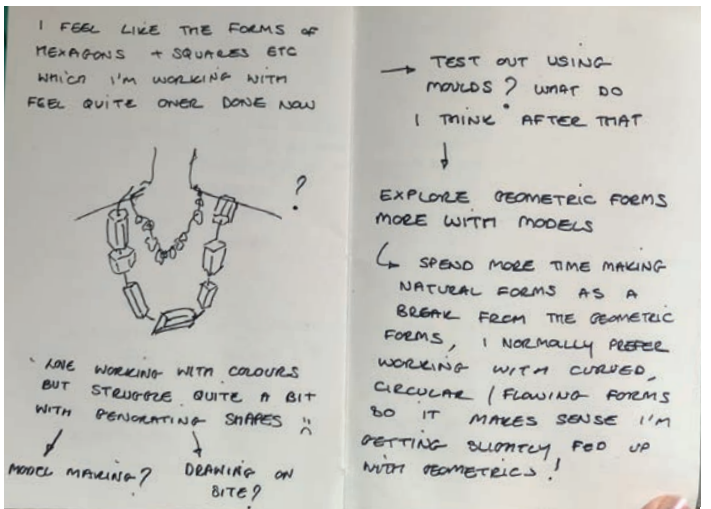 I FEEL LIKE THE FORMS OF
HEXAGONS + SQUARES ETC
WHICH I'M WORKING WITH
FEEL QUITE OVER DONE NOW
?
LOVE WORKING WITH COLOURS
BUT STRUGGLE QUITE A BIT
WITH GENORATING SHAPES :(
MODEL MAKING?
DRAWING ON
SITE?
→ TEST OUT USING
MOULDS? WHAT DO
I THINK AFTER THAT
EXPLORE GEOMETRIC FORMS
MORE WITH MODELS
↳ SPEND MORE TIME MAKING
NATURAL FORMS AS A
BREAK FROM THE GEOMETRIC
FORMS, I NORMALLY PREFER
WORKING WITH CURVED,
CIRCULAR / FLOWING FORMS
SO IT MAKES SENSE I'M
GETTING SLIGHTLY FED UP
WITH GEOMETRICS!